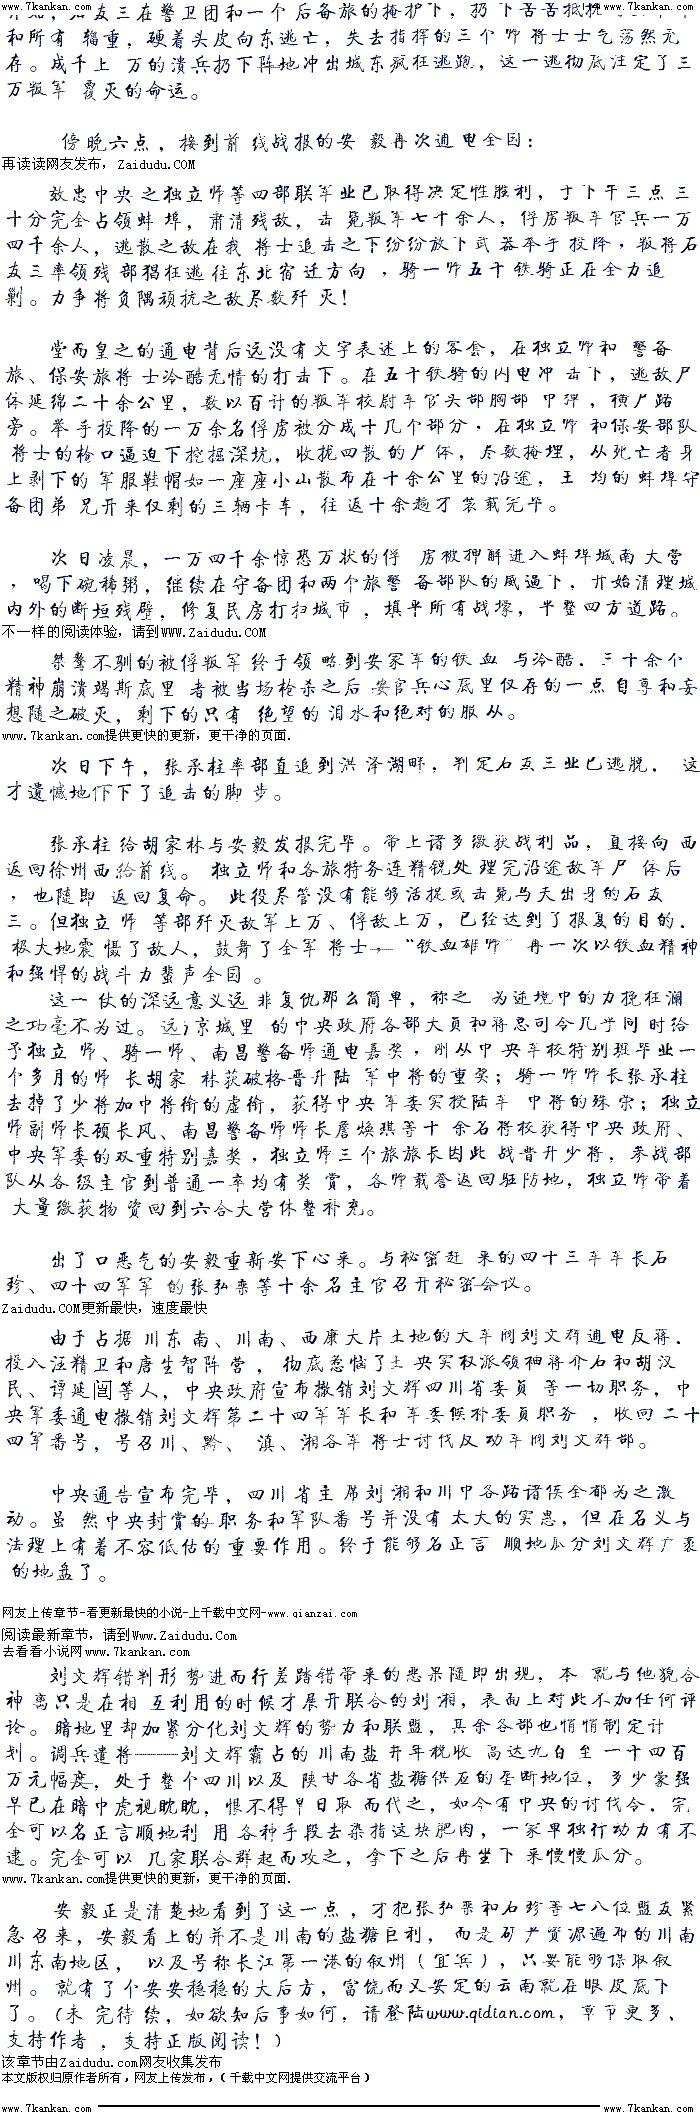 www.7kankan.com www.7kankan.com
和所有 辎重，硬着头皮向东逃亡，失去指挥的三个 师 将士士气荡然无
存。成千上 万的溃兵扔下阵地冲出城东疯狂逃跑，这一逃彻底注定了三
万叛军 覆灭的命运。
傍晚六点，接到前 线战报的安 毅再次通 电全国：
再读读网友发布，Zaidudu.COM
效忠中央 之独立师等四部联军业已取得决定性胜利，于下午三点 三
十分完全占领蚌 埠，肃清残敌，击 毙叛军七千余人，俘虏叛军官兵一万
四千余人，逃散之敌在我 将士追击之下纷纷放下武 器举手 投降，叛将石
友三率领残 部猖狂逃 往东北宿 迁方向 ，骑一师五千 铁骑正在全力追
剿。力争将负隅顽抗之敌尽数歼 灭！
堂而皇之的通电背后远没有文字表述上的客套，在独立师和 警备
旅、保安旅将 士冷酷无情的打击下。在五千铁骑的闪电冲 击下，逃敌尸
体延绵二十余公里，数以百计的叛军校尉军官头部胸部 中弹，横尸路
旁。举手投降的一万余名俘虏被分成十几个部分，在独立师 和保安部队
将士的枪口逼迫下挖掘深坑，收拢四散的尸体，尽数掩埋，从死亡者身
上剥下的 军服鞋帽如一座座小山散布在十余公里的沿途，王 均的 蚌埠守
备团弟 兄开来仅剩的三辆卡车，往 返十余趟才 装载完毕。
次日凌晨，一万四千余惊恐万状的俘 虏被押解进入蚌埠城南 大营
，喝下碗稀粥，继续在守备团和两个旅警 备部队的威逼下，开始清理城
内外的断垣残壁，修复民房打扫城市 ，填平所有战壕，平整四方道路。
不一样的阅读体验，请到WWW.Zaidudu.COM
桀骜不驯的被俘叛军 终于领 略到安家军的铁 血 与冷酷．三十余个
精神崩溃竭斯底里 者被当场枪杀之后 安官兵心底里仅存的一点 自尊和妄
想随之破灭，剩下的只有 绝望的 泪水和绝对的服 从。
www.7kankan.com提供更快的更新，更干净的页面．
次日下午，张承柱率部直追到洪 泽湖畔，判定石友三业已逃脱． 这
才遗憾地停下了追击的脚 步。
张承柱 给胡家林与安毅发报完毕。带上诸多缴获战利 品，直接向 西
返回徐州西 给前线。 独立师和各旅特务连精锐处 理完沿途敌军尸 体后
，也随即 返回复命。 此役尽管没有能够活捉或击毙马天出身的石友
三。但独立 师 等部歼灭敌军上万、俘敌上万，已经达到了报复的目的．
极大地震 慑了敌人，鼓舞了全军 将士——“铁血雄师”再一次以铁血精神
和强悍的战斗力蜚声全国 。
这一 仗的深远意义远 非复仇那么简单，称之 为逆境中的力挽狂澜
之功毫不为过。远在京城里 的中央政府各部大员和蒋总司令几乎同 时给
予独立 师、骑一师、南昌警备师通电嘉奖，刚从中 央军校特别班毕业一
个多月的师 长胡家 林获破格晋升陆 军中将的重奖；骑一师师长张承柱
去掉了少将加中将衔的虚衔，获得中央 军委实授陆军 中将的殊 荣；独立
师副师长顾长风、南昌警备师师长詹焕琪等十 余名将校获得中央 政府、
中央军委的双重特别嘉奖，独立师三个旅旅长因此 战晋升少将，参战部
队从各级主官到普通一卒均有奖 赏，各师载誉返回驻防地，独立师带着
大量缴获物 资回到六合大营休整补充。
出了口恶气的安毅重新安下心来。与秘密赶 来的四十三军军长石
珍、四十四军军 的张弘栾等十余名主官召开秘密会议。
Zaidudu.COM更新最快，速度最快
由于占据 川东 南、川南、西康大片土地的大军阀刘文辉通电反蒋．
投入汪精卫和唐生智阵 营 ， 彻底惹恼了中央实权派领袖蒋介石和胡汉
民、谭延闿等人，中央政府宣布撤销刘文辉四川省委员 等一切职务，中
央军委通电撤销刘文辉第二十四军军长和 军委候补委员职务 ，收回 二十
四军番号，号召川、黔、 滇、湘各军 将士讨伐反动军阀刘文辉部。
中央通告宣布完毕，四川 省主 席刘 湘和川中各路诸侯全都为之激
动。虽 然中央封赏的职 务和军队番 号并没有 太大的实惠，但在名义与
法理上有着不容低估的 重要作用。终于能够名正言 顺地瓜分刘文辉广袤
的地盘了。
网友上传章节-看更新最快的小说-上千载中文网-www.qianzai.com
阅读最新章节，请到Www.Zaidudu.Com
去看看小说网www.7kankan.com
刘文辉错判形 势进而行差踏错带来的恶果随即出现，本 就与他貌合
神 离只是在相 互利用的时候才展开联合的刘 湘，表面上对此不加任何评
论。 暗地里却加紧分化刘文辉的势力和联盟，其余各部也悄悄制定计
划。调兵遣将——刘文辉霸占的 川南盐 井年税收 高达九百 至 一千四百
万元幅度，处于整个四川以及 陕甘各省盐糖供应的垄断地位，多少豪强
早已在暗中虎视眈眈，恨不得早日取 而代之，如今有中央的讨伐令．完
全可以名正言顺地利 用各种手段去染指这块肥肉，一家单独行动力有不
逮。完全可以 几家联合群起而攻之，拿下之后再坐下 来慢慢瓜分。
www.7kankan.com提供更快的更新，更干净的页面．
安 毅正是清楚地看到了这一点 ，才把张弘栾和石珍等七八位盟友紧
急召来，安毅看上的并不是川南的盐糖巨利， 而是矿产资源遍布的川南
川东南地区， 以及号称长江第一港的叙州（宜宾），只要能够谋取叙
州。 就有了个安安稳稳的大后方，富饶而又安定的云南就在眼皮底下
了。（未 完待 续，如欲知后事如何，请登陆www.qidian.com，章节更多、
支持作者 ，支持正版阅读！）
该章节由Zaidudu.com网友收集发布
本文版权归原作者所有，网友上传发布，（千载中文网提供交流平台）
www.7kankan.com www.7kankan.com